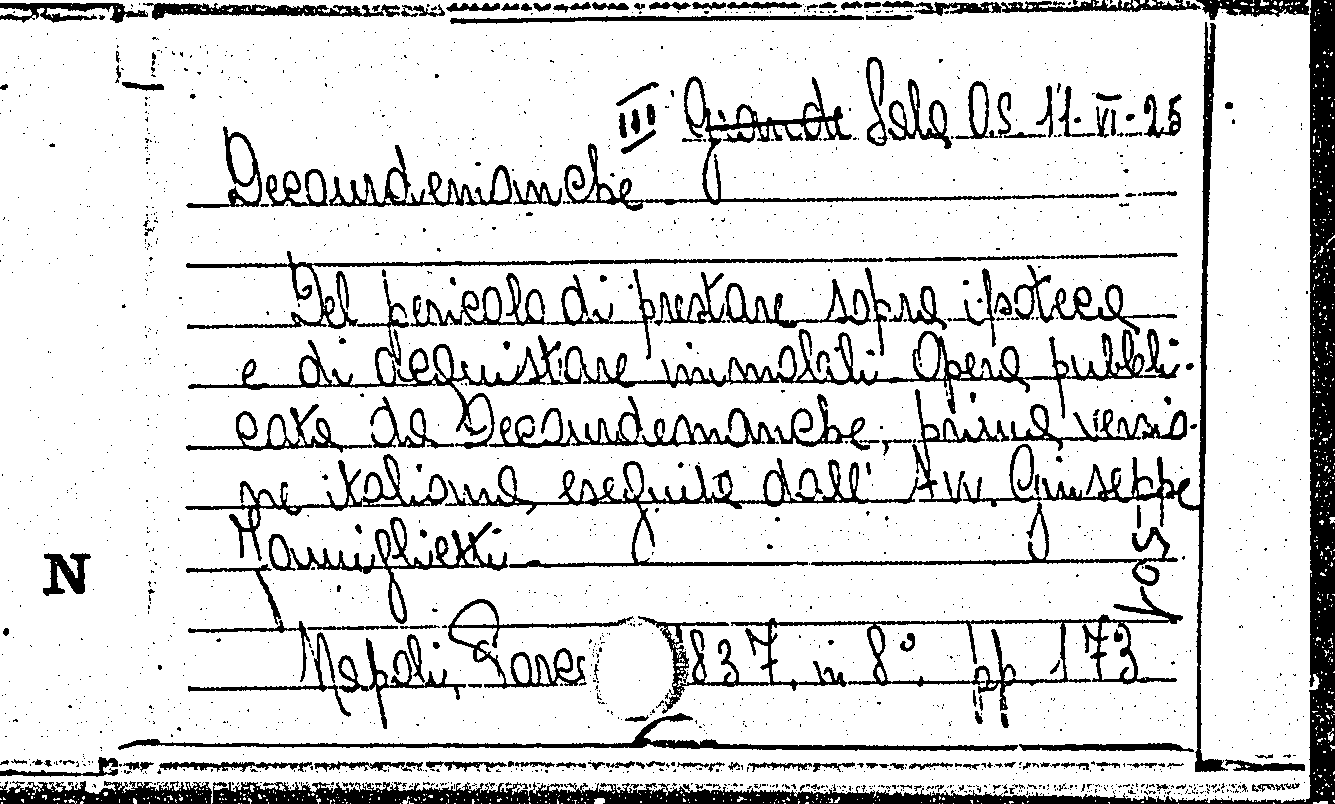 III Grande Sala O.S. 11-VI-25
Decourdemanche
Del pericolo di prestare sopra ipoteca
e di acquistare immobili Opera pubbli-
cata da Decourdemanche, prima versio-
ne italiana, eseguita dall' Avv. Giuseppe
Vos-
N
Napoli, 1837. in 8°. pp. 173